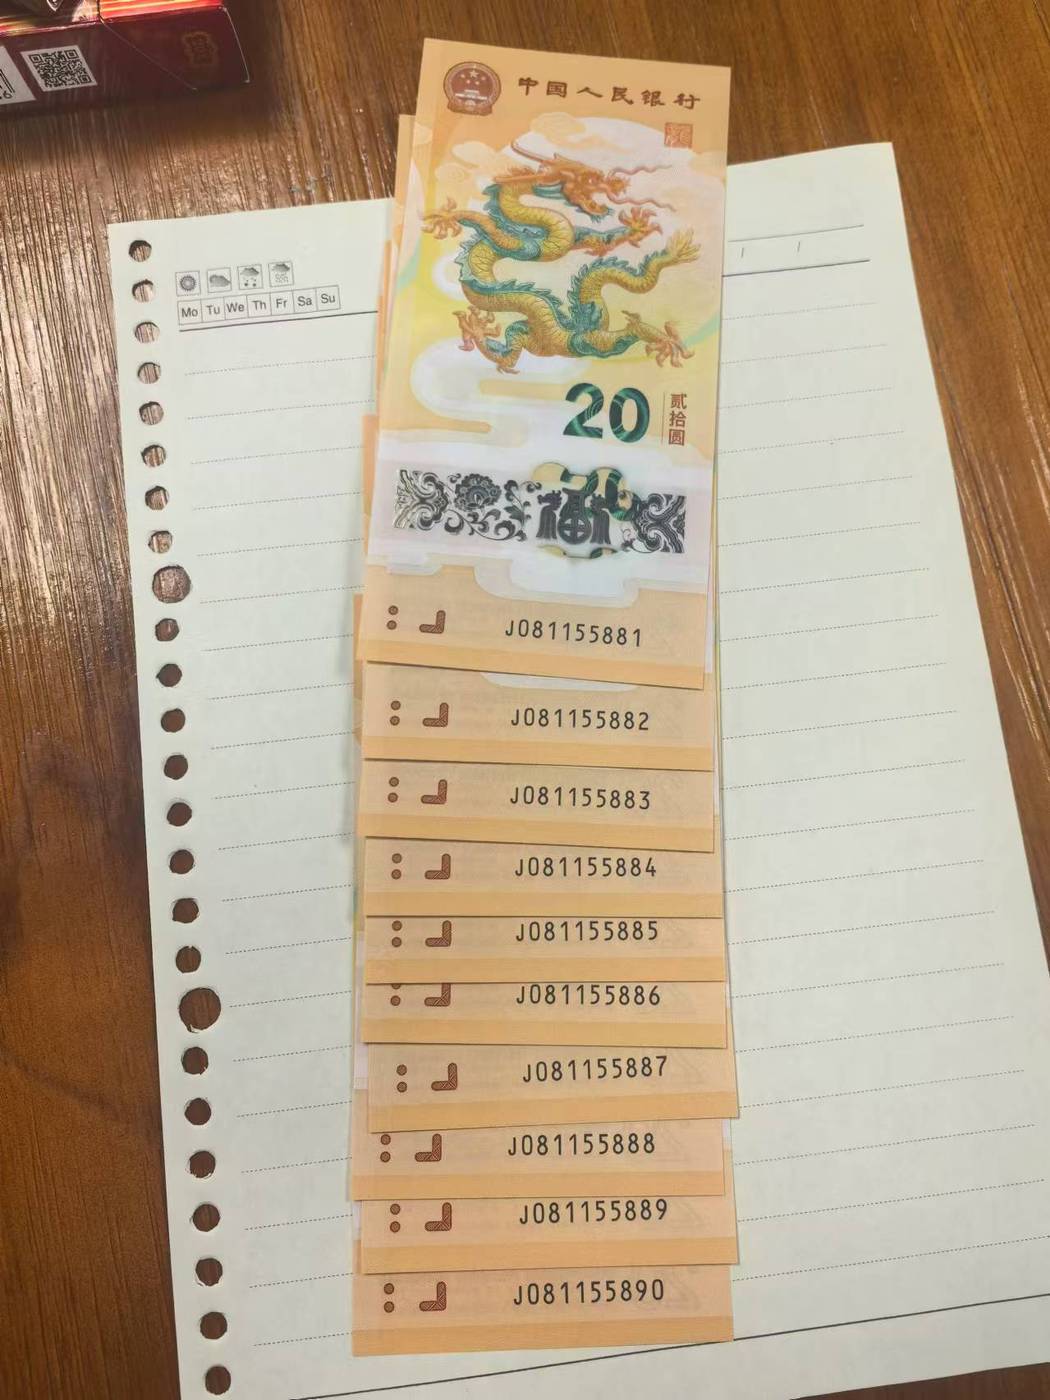 中国人民银行
Mo Tu We Th Fr Sa Su
20
贰拾圆
福
J081155881
J081155882
J081155883
J081155884
J081155885
J081155886
J081155887
J081155888
J081155889
J081155890